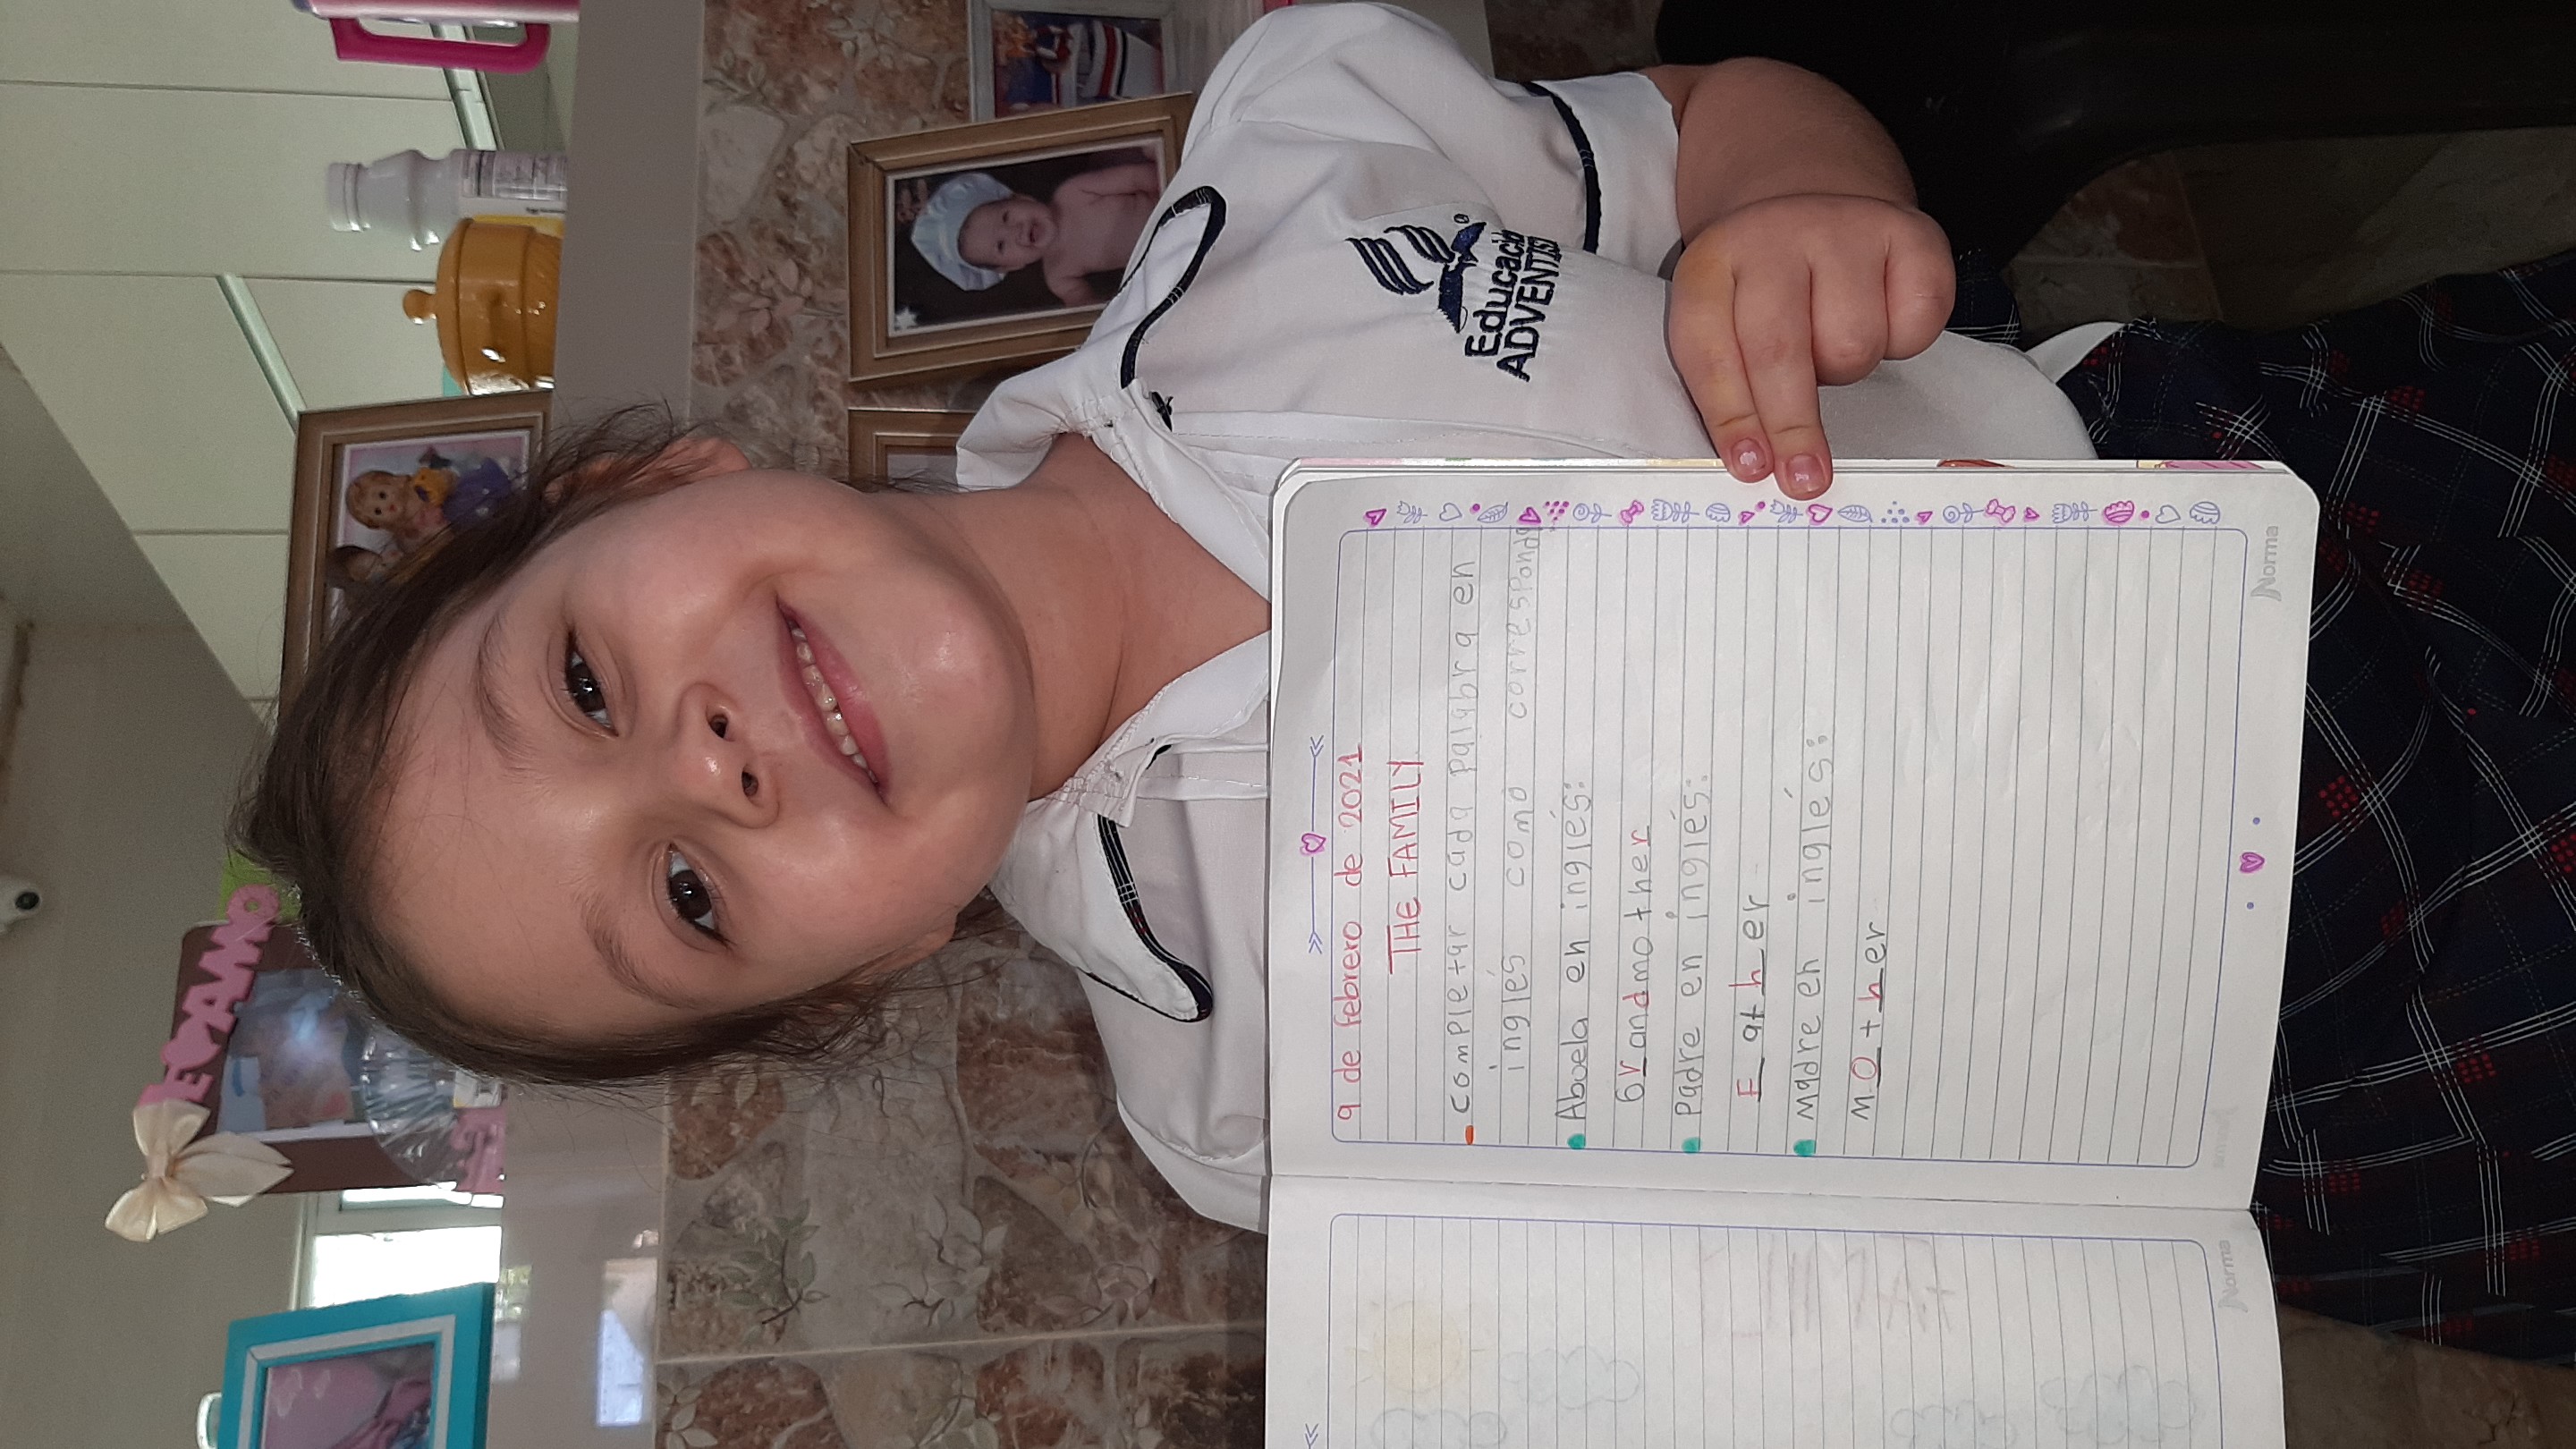 TE AMO
9 de febrero de 2021
THE FAMILY
completar cada palabra en
inglés como corresponda
Abuela en inglés:
Grandmother
Padre en inglés:
F at h er
Madre en inglés:
M O t h er
Norma
Norma
Educació
ADVENTIS